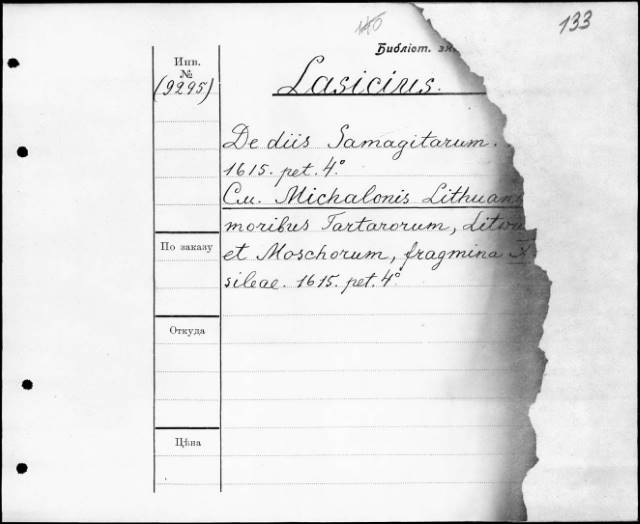 133
Библіот.
Инв.
№
(9295)
Lasicius.
De diis Samagitarum.
1615. pet. 4°
См. Michalonis
moribus Tartarorum,
et Moschorum, fragmina X
sileae. 1615. pet. 4°
По заказу
Откуда
Цѣна